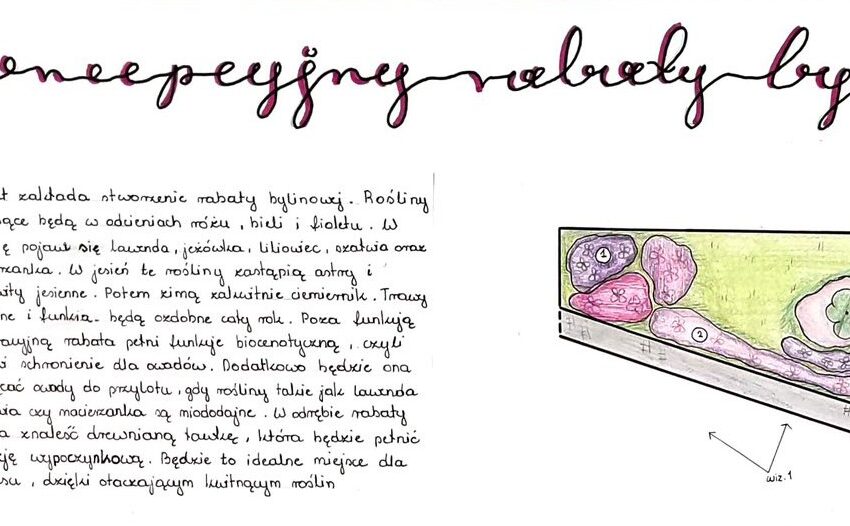 oncepcyjny rabaty by
t zakłada stworzenie rabaty bylinowej. Rośliny
ące będą w odcieniach różu, bieli i fioletu. W
ę pojawi się lawenda, jeżówka, liliowiec, szałwia oraz
rzanka. W jesień te rośliny zastąpią astry i
ity jesienne. Potem zimą zakwitnie ciemiernik. Trawy
ne i funkia będą ozdobne cały rok. Poza funkcją
acyjną rabata pełni funkcje biocenotyczną, czyli
i schronienie dla owadów. Dodatkowo będzie ona
cać owady do przylotu, gdy rośliny takie jak lawenda
wia czy macierzanka są miododajne. W odrębie rabaty
a znaleść drewnianą ławkę, która będzie pełnić
ję wypoczynkową. Będzie to idealne miejsce dla
su, dzięki otaczającym kwitnącym roślin
1
2
wiz.1